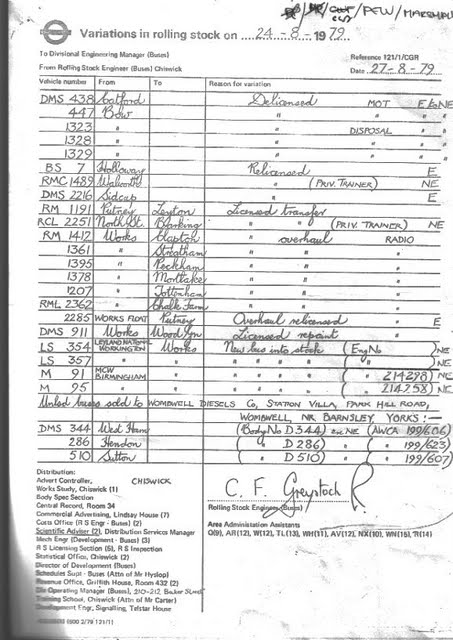 /PEW/MARSHALL
Variations in rolling stock on 24 - 8 - 1979
To Divisional Engineering Manager (Buses)
Reference 121/1/CGR
From Rolling Stock Engineer (Buses) Chiswick
Date 27-8-79
Vehicle number From To Reason for variation
DMS 438 Catford Delicensed MOT E & NE
447 Bow " " "
1323 " " DISPOSAL "
1328 " " " "
1329 " " " "
BS 7 Holloway Relicensed E
RMC 1489 Walworth " (PRIV. TRAINER) NE
DMS 2216 Sidcup " E
RM 1191 Putney Leyton Licensed transfer
RCL 2251 North St. Barking " " (PRIV. TRAINER) NE
RM 1412 Works Clapton " overhaul RADIO
1361 " Streatham " " "
1395 " Peckham " " "
1378 " Mortlake " " "
1207 " Tottenham " " "
RML 2362 " Chalk Farm " " "
2285 WORKS FLOAT Putney Overhaul relicensed E
DMS 911 Works Wood Gn Licensed repaint
LS 354 LEYLAND NATIONAL WORKINGTON Works New bus into stock (Eng No ) NE
LS 357 " " " " " ( " ) NE
M 91 MCW BIRMINGHAM " " " " ( " 214298) NE
M 95 " " " " " ( " 214258) NE
Unlsd buses sold to WOMBWELL DIESELS Co, STATION VILLA, PARK HILL ROAD,
WOMBWELL, NR BARNSLEY, YORKS :-
DMS 344 West Ham (Body No D344) NE (AWCA 199/606)
286 Hendon ( " D286) " ( " 199/623)
510 Sutton ( " D510) " ( " 199/607)
Distribution:
Advert Controller, CHISWICK
Works Study, Chiswick (1)
Body Spec Section
Central Record, Room 34
Commercial Advertising, Lindsay House (7)
Costs Office (R S Engr - Buses) (2)
Scientific Adviser (2), Distribution Services Manager
Mech Engr (Development - Buses) (3)
R S Licensing Section (5), R S Inspection
Statistical Office, Chiswick (2)
Director of Development (Buses)
Schedules Supt - Buses (Attn of Mr Hyslop)
Revenue Office, Griffith House, Room 432 (2)
Operating Manager (Buses), 210-212, Baker Street
Training School, Chiswick (Attn of Mr Carter)
Development Engr, Signalling, Telstar House
C. F. Greystock
Rolling Stock Engineer (Buses)
Area Administration Assistants
Q(9), AR(12), W(12), TL(13), WH(11), AV(12), NX(10), WN(15), R(14)
2/79 121/11